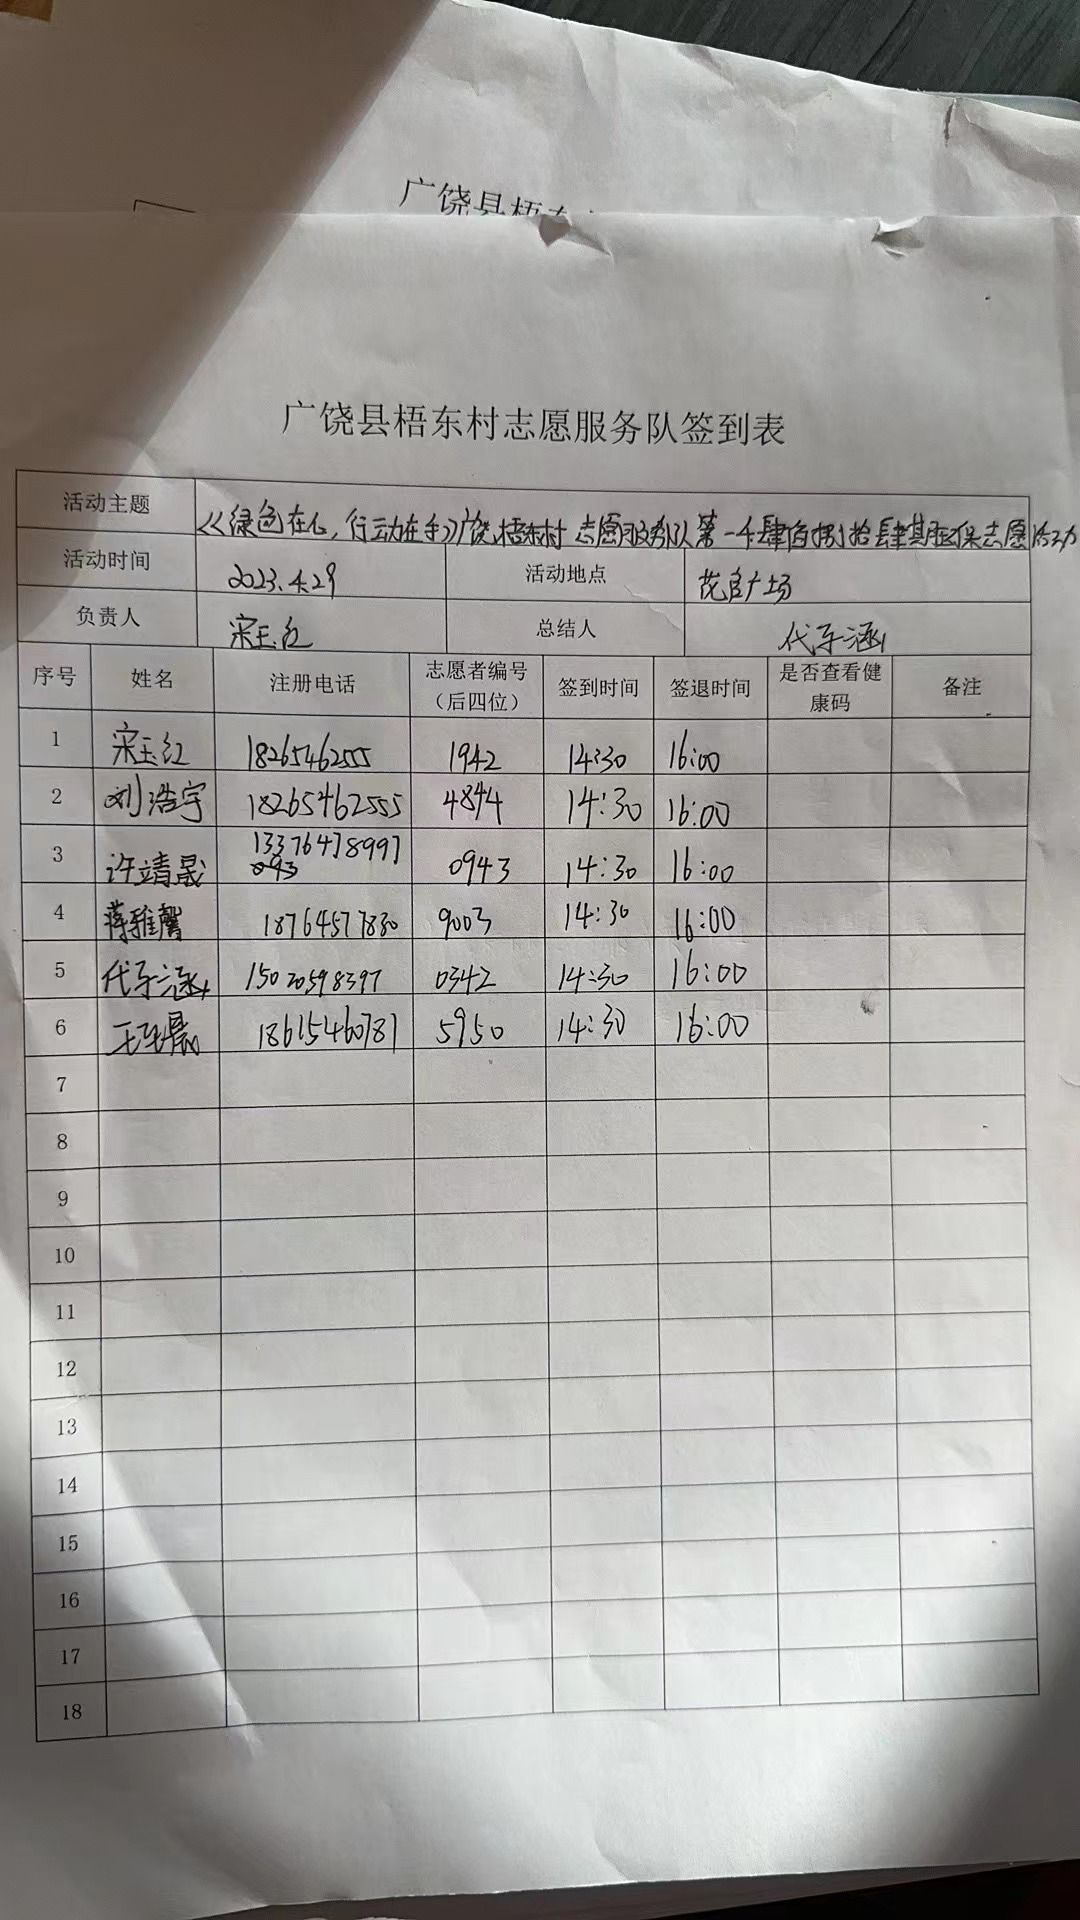 广饶县梧东
广饶县梧东村志愿服务队签到表
活动主题 《绿色在心,行动在手》广饶梧东村志愿服务队第一千肆佰捌拾肆期环保志愿活动
活动时间 2023.4.29 活动地点 花官广场
负责人 宋玉红 总结人 代子涵
序号 姓名 注册电话 志愿者编号(后四位) 签到时间 签退时间 是否查看健康码 备注
1 宋玉红 1826546255 1942 14:30 16:00
2 刘浩宇 18265462555 4844 14:30 16:00
3 许靖晟 13376478997 0943 14:30 16:00
4 蒋雅馨 18764577830 9003 14:30 16:00
5 代子涵 15020598397 0342 14:30 16:00
6 王 18615460781 5950 14:30 16:00
7
8
9
10
11
12
13
14
15
16
17
18